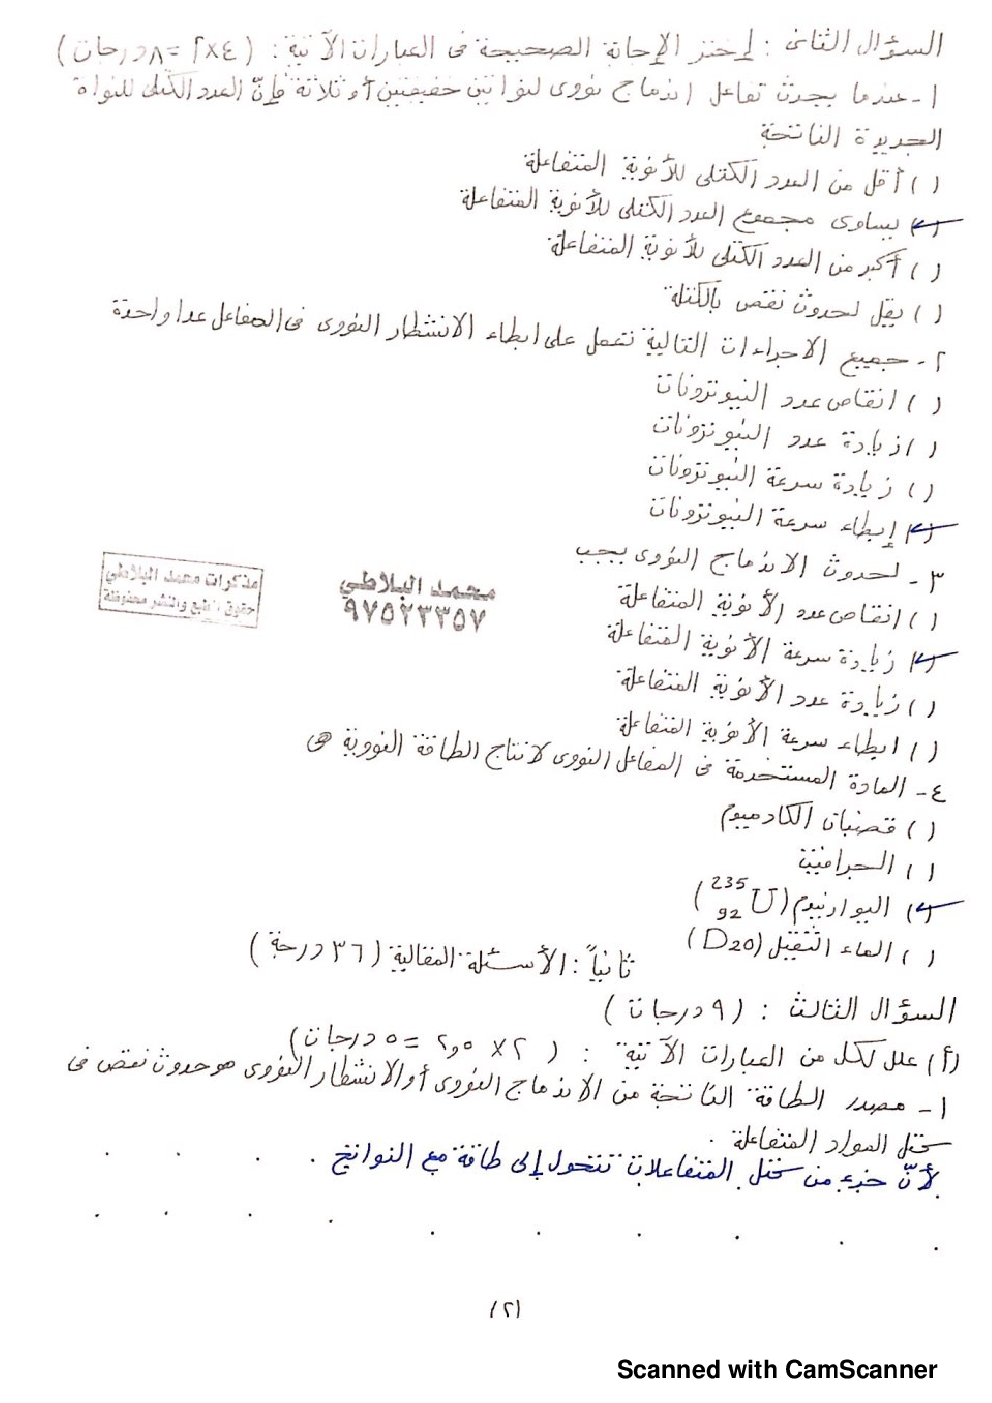 السؤال الثانى : إختر الإجابة الصحيحة فى العبارات الآتية : ( ٤×٢ = ٨ درجات )
١ - عندما يحدث تفاعل اندماج نووى لنواتين خفيفتين أو ثلاثة فإنّ العدد الكتلى للنواة
الجديدة الناتجة
( ) أقل من العدد الكتلى للأنوية المتفاعلة
( ) يساوى مجموع العدد الكتلى للأنوية المتفاعلة
( ) أكبر من العدد الكتلى للأنوية المتفاعلة
( ) يقل لحدوث نقص بالكتلة
٢ - جميع الاجراءات التالية تعمل على ابطاء الانشطار النووى فى المفاعل عدا واحدة
( ) انقاص عدد النيوترونات
( ) زيادة عدد النيوترونات
( ) زيادة سرعة النيوترونات
( ) إبطاء سرعة النيوترونات
٣ - لحدوث الاندماج النووى يجب
( ) انقاص عدد الأنوية المتفاعلة
( ) زيادة سرعة الأنوية المتفاعلة
( ) زيادة عدد الأنوية المتفاعلة
( ) ابطاء سرعة الأنوية المتفاعلة
٤ - المادة المستخدمة فى المفاعل النووى لانتاج الطاقة النووية هى
( ) قضبان الكادميوم
( ) الجرافيت
( ) اليورانيوم ( ²³⁵₉₂U )
( ) الماء الثقيل (D20)
مذكرات محمد البلاطي
حقوق الطبع والنشر محفوظة
محمد البلاطي
٩٧٥٢٣٣٥٧
ثانياً : الأسئلة المقالية ( ٣٦ درجة )
السؤال الثالث : ( ٩ درجات )
(أ) علل لكل من العبارات الآتية : ( ٢ × ٢,٥ = ٥ درجات )
١ - مصدر الطاقة الناتجة من الاندماج النووى أو الانشطار النووى هو حدوث نقص فى
كتل المواد المتفاعلة .
لأنّ جزء من كتل المتفاعلات تتحول إلى طاقة مع النواتج .
(٢)
Scanned with CamScanner